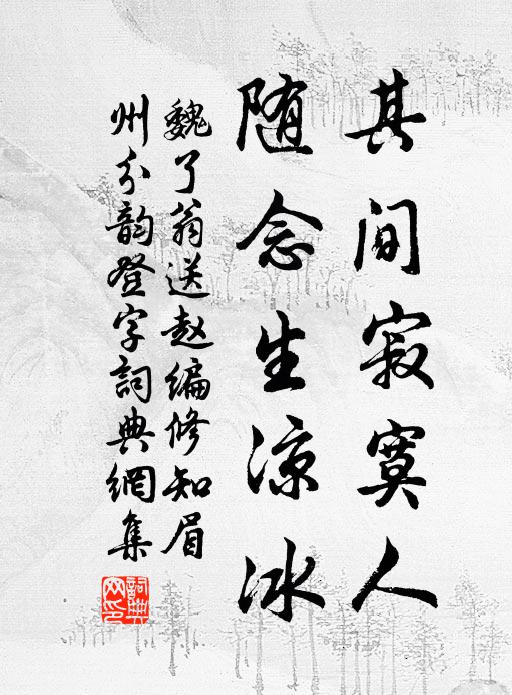 其间寂寞人
随念生凉冰
魏了翁送赵编修知眉
州分韵登字詞典網集
詞典网印